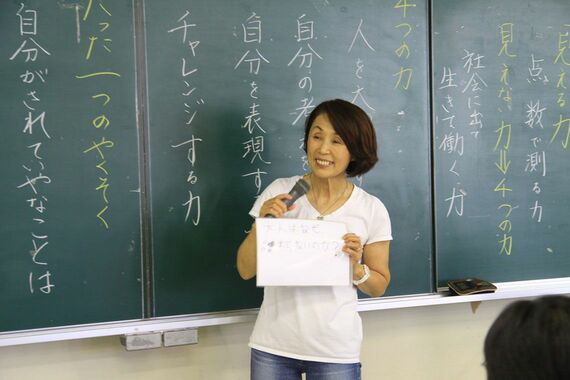 見える力
点数で測る力
見えない力→4つの力
社会に出て
生きて働く力
4つの力
人を大
自分の考
自分を表現す
チャレンジする力
たった一つのやくそく
自分がされていやなことは